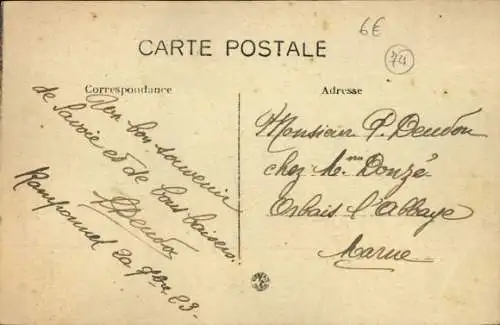 6€
74
CARTE POSTALE
Correspondance
Adresse
Un bon souvenir
de Savoie et de bons baisers.
Doudou
20 9bre 23.
Monsieur P. Doudou
chez Mme Donzé
Orbais l'abbaye
Marne